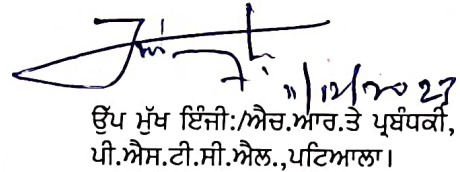 11/12/2023
ਉੱਪ ਮੁੱਖ ਇੰਜੀ:/ਐਚ.ਆਰ.ਤੇ ਪ੍ਰਬੰਧਕੀ,
ਪੀ.ਐਸ.ਟੀ.ਸੀ.ਐਲ.,ਪਟਿਆਲਾ।